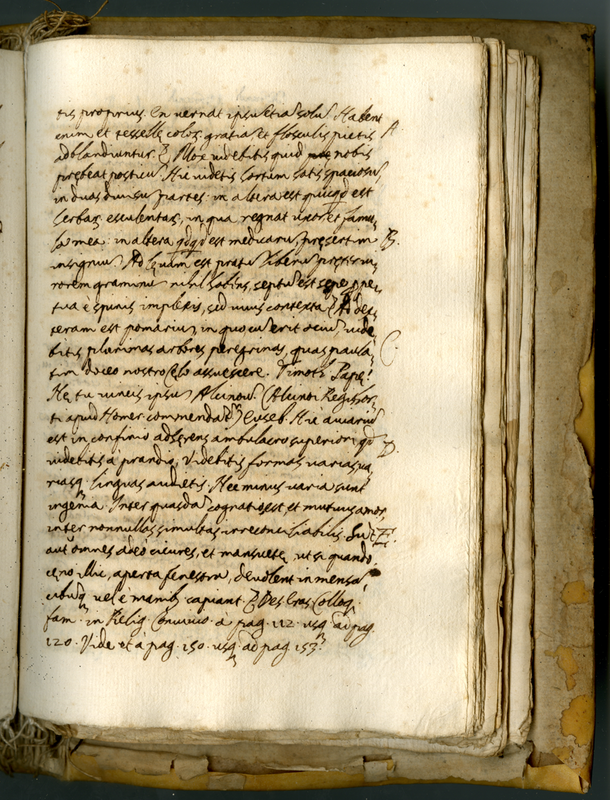 tis proprius. En vernat ipsū etiā solū. Habent
enim et tesselle coloꝝ gratiā et flosculis pictis A.
adblandiuntur. Mox videbitis quid nobis
prebeat posticū. Hic videtis hortum satis spaciosū,
in duas divisū partes: in altera est quicqd est
herbaꝝ esculentaꝝ, in qua regnat uxor et famu,
la mea: in altera qdqd est medicaruꝫ, presertim B.
insigniuꝫ. Ad levam est pratū liberū preter vi,
rorem graminis nihil habens, septū est sepe perpe,
tua e spinis implexis, sed vivis contexta. Ad dex,
teram est pomariuꝫ, in quo cū erit ociū vide,
bitis plurimas arbores peregrinas, quas paula, C.
tim doceo nostro Celo assuescere. Timoth. Pape!
Ne tu vincis ipsū Alcinoū (Alcinoi Regis hor,
ti apud Homer. commendatʳ) Euseb. Hic aviariū
est in confinio adherens ambulacro superiori qd D.
videbitis à prandio, Videbitis formas varias, va,
riasq. linguas audietis. Nec minus varia sunt
ingenia. Inter quasdā cognatio est et mutuus amor,
inter nonnullas simultas irreconciliabilis. Sūt E.
autē omnes adeò cicures, et mansuete, ut si quando
ceno illic, aperta fenestra, devolent in mensā
cibūq. vel e manibꝰ capiant. Des. Eras. Colloq.
fam. in Relig. Convivio. a pag. 112. usq. ad pag.
120. Vide et à pag. 150. usq. ad pag. 153.